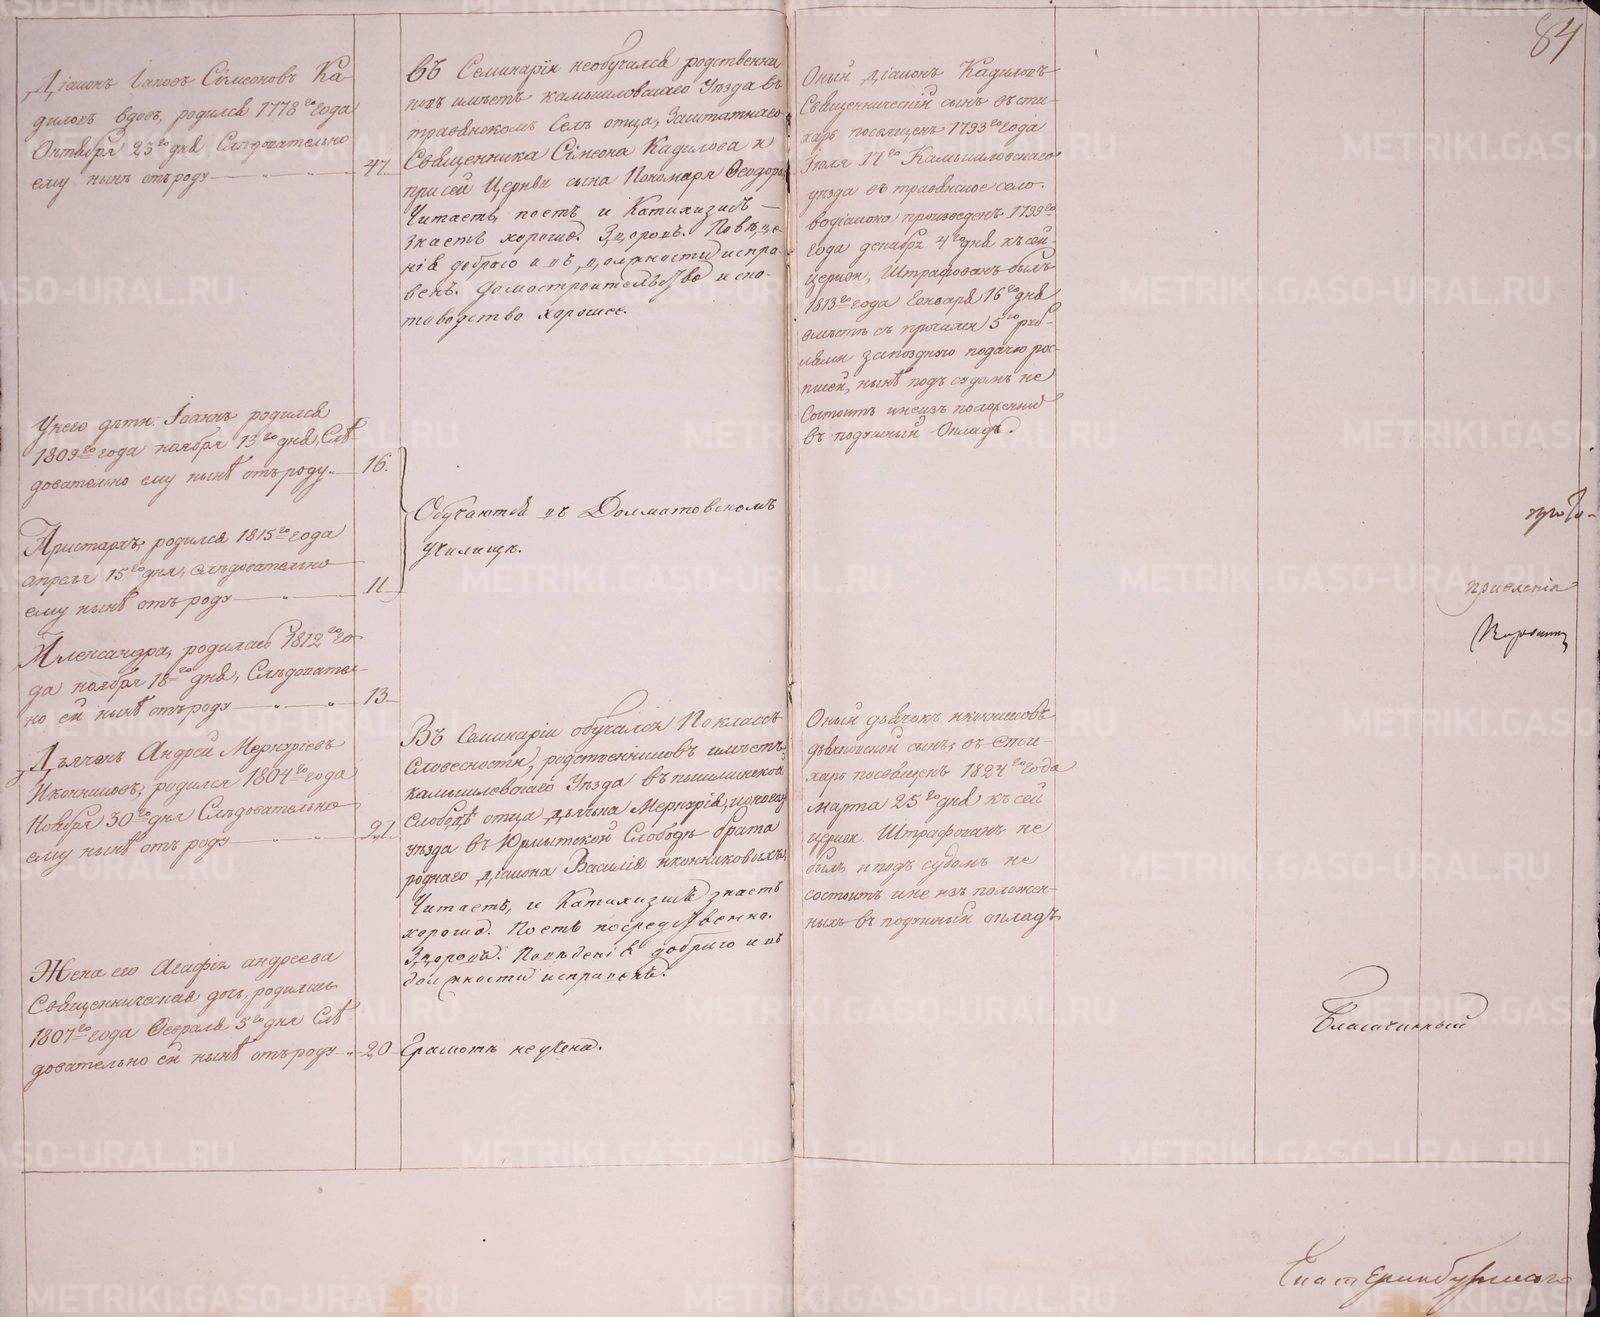 84
Діаконъ Іаковъ Сімеоновъ Ка-
диловъ вдовъ, родился 1778го года
Октября 23го дня Слѣдовательно
ему нынѣ отъ роду 47.
Въ Семинаріи необучался родственни
ковъ имѣетъ камышловскаго Уѣзда въ
травянскомъ Селѣ отца, Заштатнаго
Священника Сімеона Кадилова и
при сей Церкви сына Пономаря Ѳеодора
Читаетъ, поетъ и Катихизисъ
знаетъ хорошо. Здоровъ. Поведе-
нія добраго и въ должности испра-
венъ. Домостроительство и ско-
товодство хорошее.
Оный діаконъ Кадиловъ
Священническій сынъ въ сти-
харь посвященъ 1793го года
Іюля 17го Камышловскаго
уѣзда въ травянское село.
Во діакона произведенъ 1799го
года декабря 4го дня къ сей
церкви, Штрафованъ былъ
1813го года Генваря 16го дня
вмѣстѣ съ прочими 5ю руб-
лями за позднюю подачу рос-
писей, нынѣ подъ судомъ не
состоитъ и неизъ положенныхъ
въ подушный Окладъ.
У него дѣти. Іоаннъ родился
1809го года ноября 13го дня, Слѣ-
довательно ему нынѣ отъ роду 16.
Аристархъ, родился 1815го года
апреля 15го дня, слѣдовательно
ему нынѣ отъ роду 11.
Обучаются въ Долматовскомъ
училищѣ.
Александра, родилась 1812го го-
да ноября 18го дня, Слѣдователь-
но ей нынѣ отъ роду 13.
Дьячекъ Андрей Меркуріевъ
Иконниковъ, родился 1804го года
Ноября 30го дня Слѣдовательно
ему нынѣ отъ роду 21.
Въ Семинаріи обучался По классъ
Словесности, родственниковъ имѣетъ
камышловскаго Уѣзда въ пышминской
Слободѣ отца дьячка Меркурія,
уѣзда въ Юрмытской Слободѣ брата
роднаго діакона Василія иконниковыхъ.
Читаетъ, и Катихизисъ знаетъ
хорошо. Поетъ посредственно.
Здоровъ. Поведенія добраго и въ
должности исправенъ.
Оный дьячекъ иконниковъ
дьячковской сынъ; въ сти-
харь посвященъ 1824го года
марта 25го дня къ сей
церкви. Штрафованъ не
былъ и подъ судомъ не
состоитъ и не изъ положен-
ныхъ въ подушный окладъ.
Жена его Агафія андреева
Священническая дочь, родилась
1807го года Февраля 5го дня Слѣ-
довательно ей нынѣ отъ роду 20
Грамотѣ не учена.
прото-
Благочинный
Екатеринбургскаго